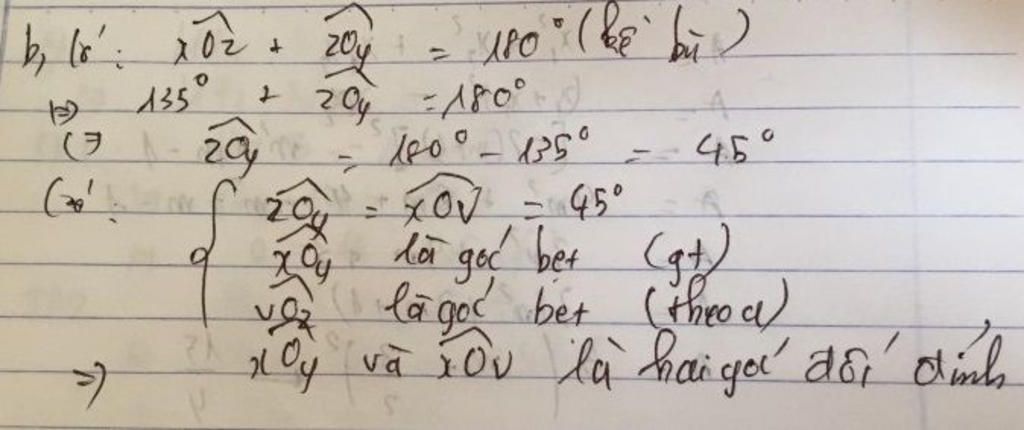 b, Có: xOz + zOy = 180° (kề bù)
=> 135° + zOy = 180°
<=> zOy = 180° - 135° = 45°
Có: { zOy = xOv = 45°
xOy là góc bẹt (gt)
vOz là góc bẹt (theo a)
=> xOy và xOv là hai góc đối đỉnh